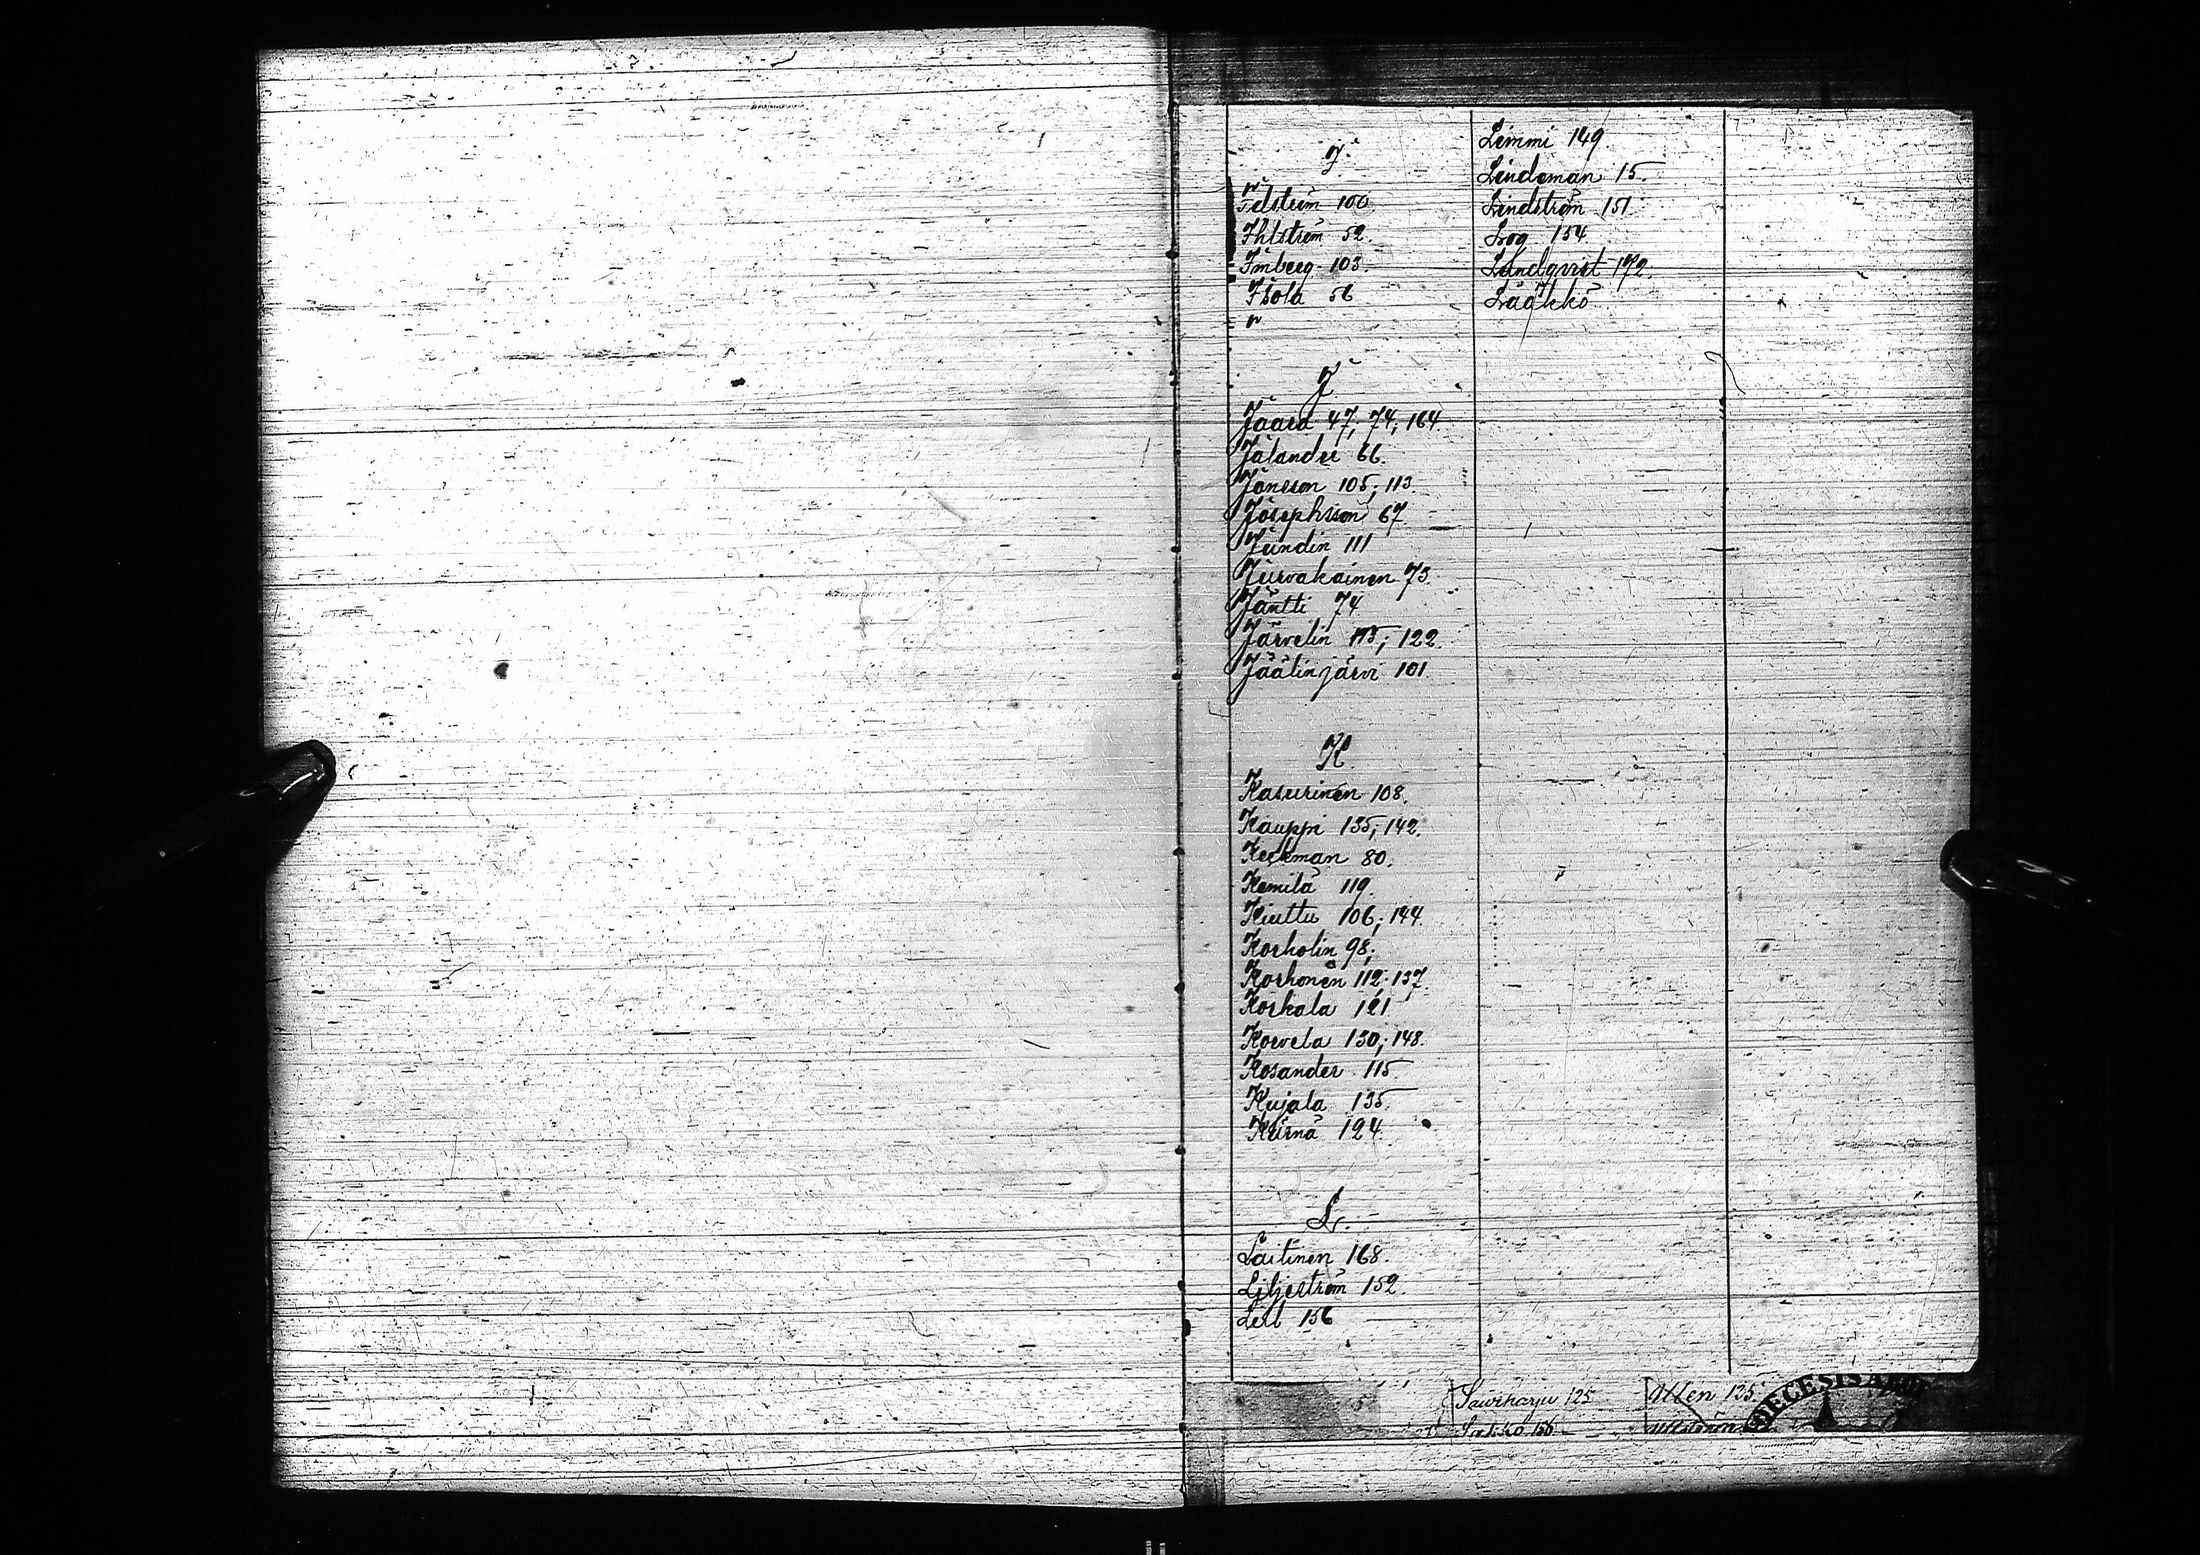 I.
Idström 100.
Ihlström 52.
Imberg 103.
Isola 56
J
Jaara 47; 74; 164
Jalander 66.
Janson 105; 113
Josephsson 67
Jundin 111
Jurvakainen 73.
Jäntti 74
Järvelin 115; 122.
Jäälinjärvi 101.
K.
Kasurinen 108.
Kauppi 135; 142.
Keckman 80.
Kemilä 119.
Kiuttu 106; 144.
Korholin 98;
Korhonen 112; 137.
Korkala 121
Korvela 130; 148.
Kosander 115
Kujala 135.
Kürnä 124.
L.
Laitinen 168.
Liljeström 152.
Lell 156
Limmi 149
Lindeman 15.
Lindström 151.
Log 154.
Lundqvist 172.
Lääkkö
Saviharju 125
Utten 125
DECESIS